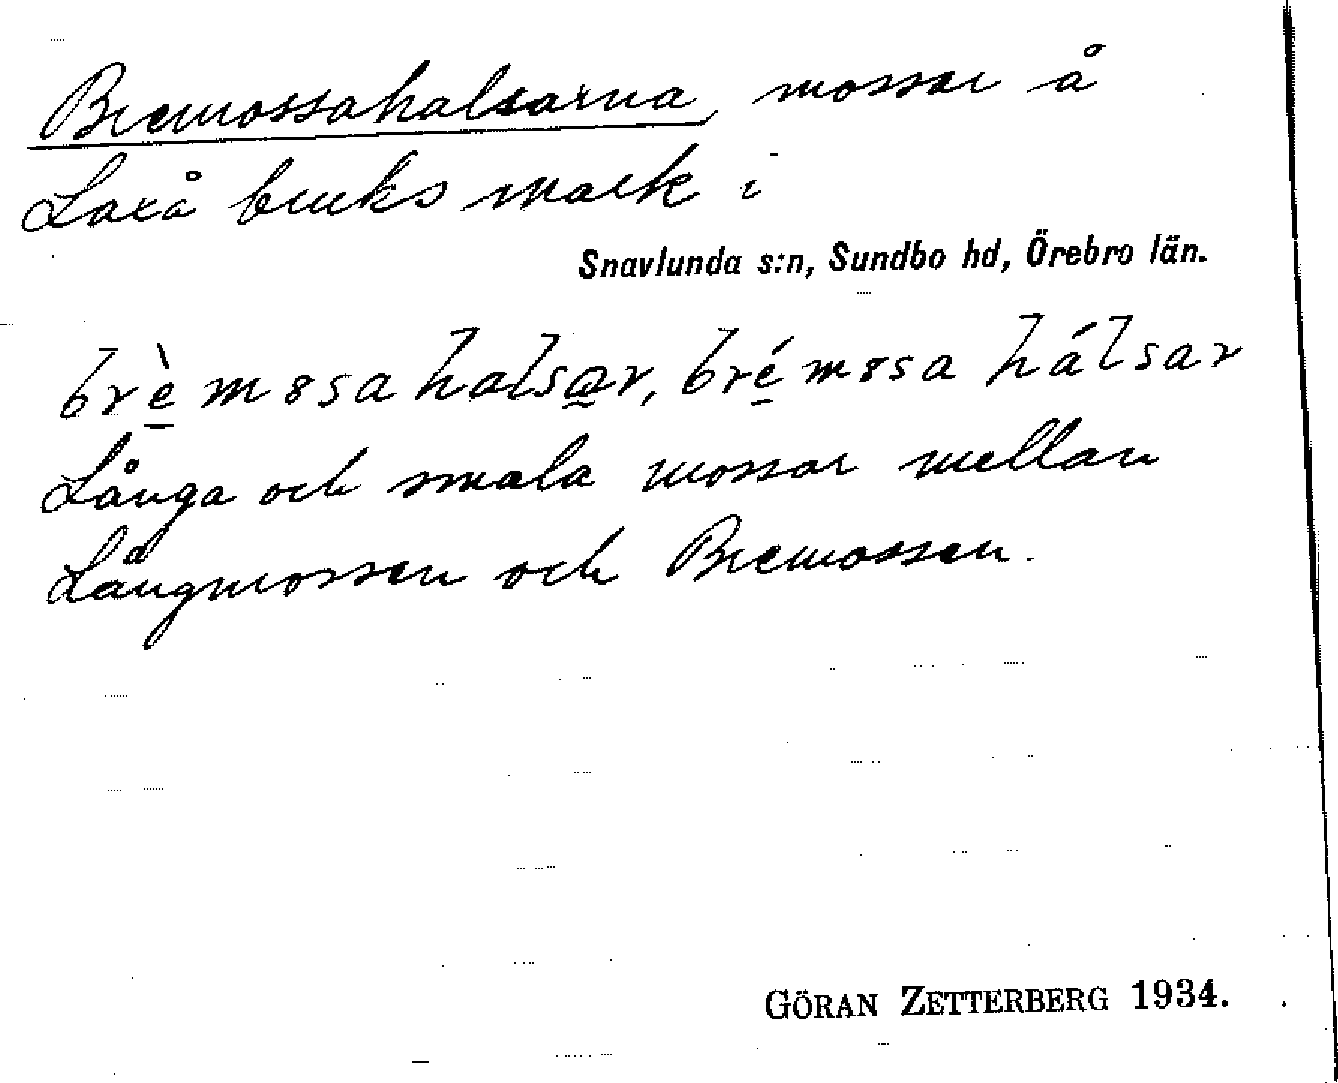 Bremossahalsarna, mossar å
Laxå bruks mark i
Snavlunda s:n, Sundbo hd, Örebro län.
brèmosahalsar, brémosa hálsar
Långa och smala mossar mellan
Långmossen och Bremossen.
GÖRAN ZETTERBERG 1934.